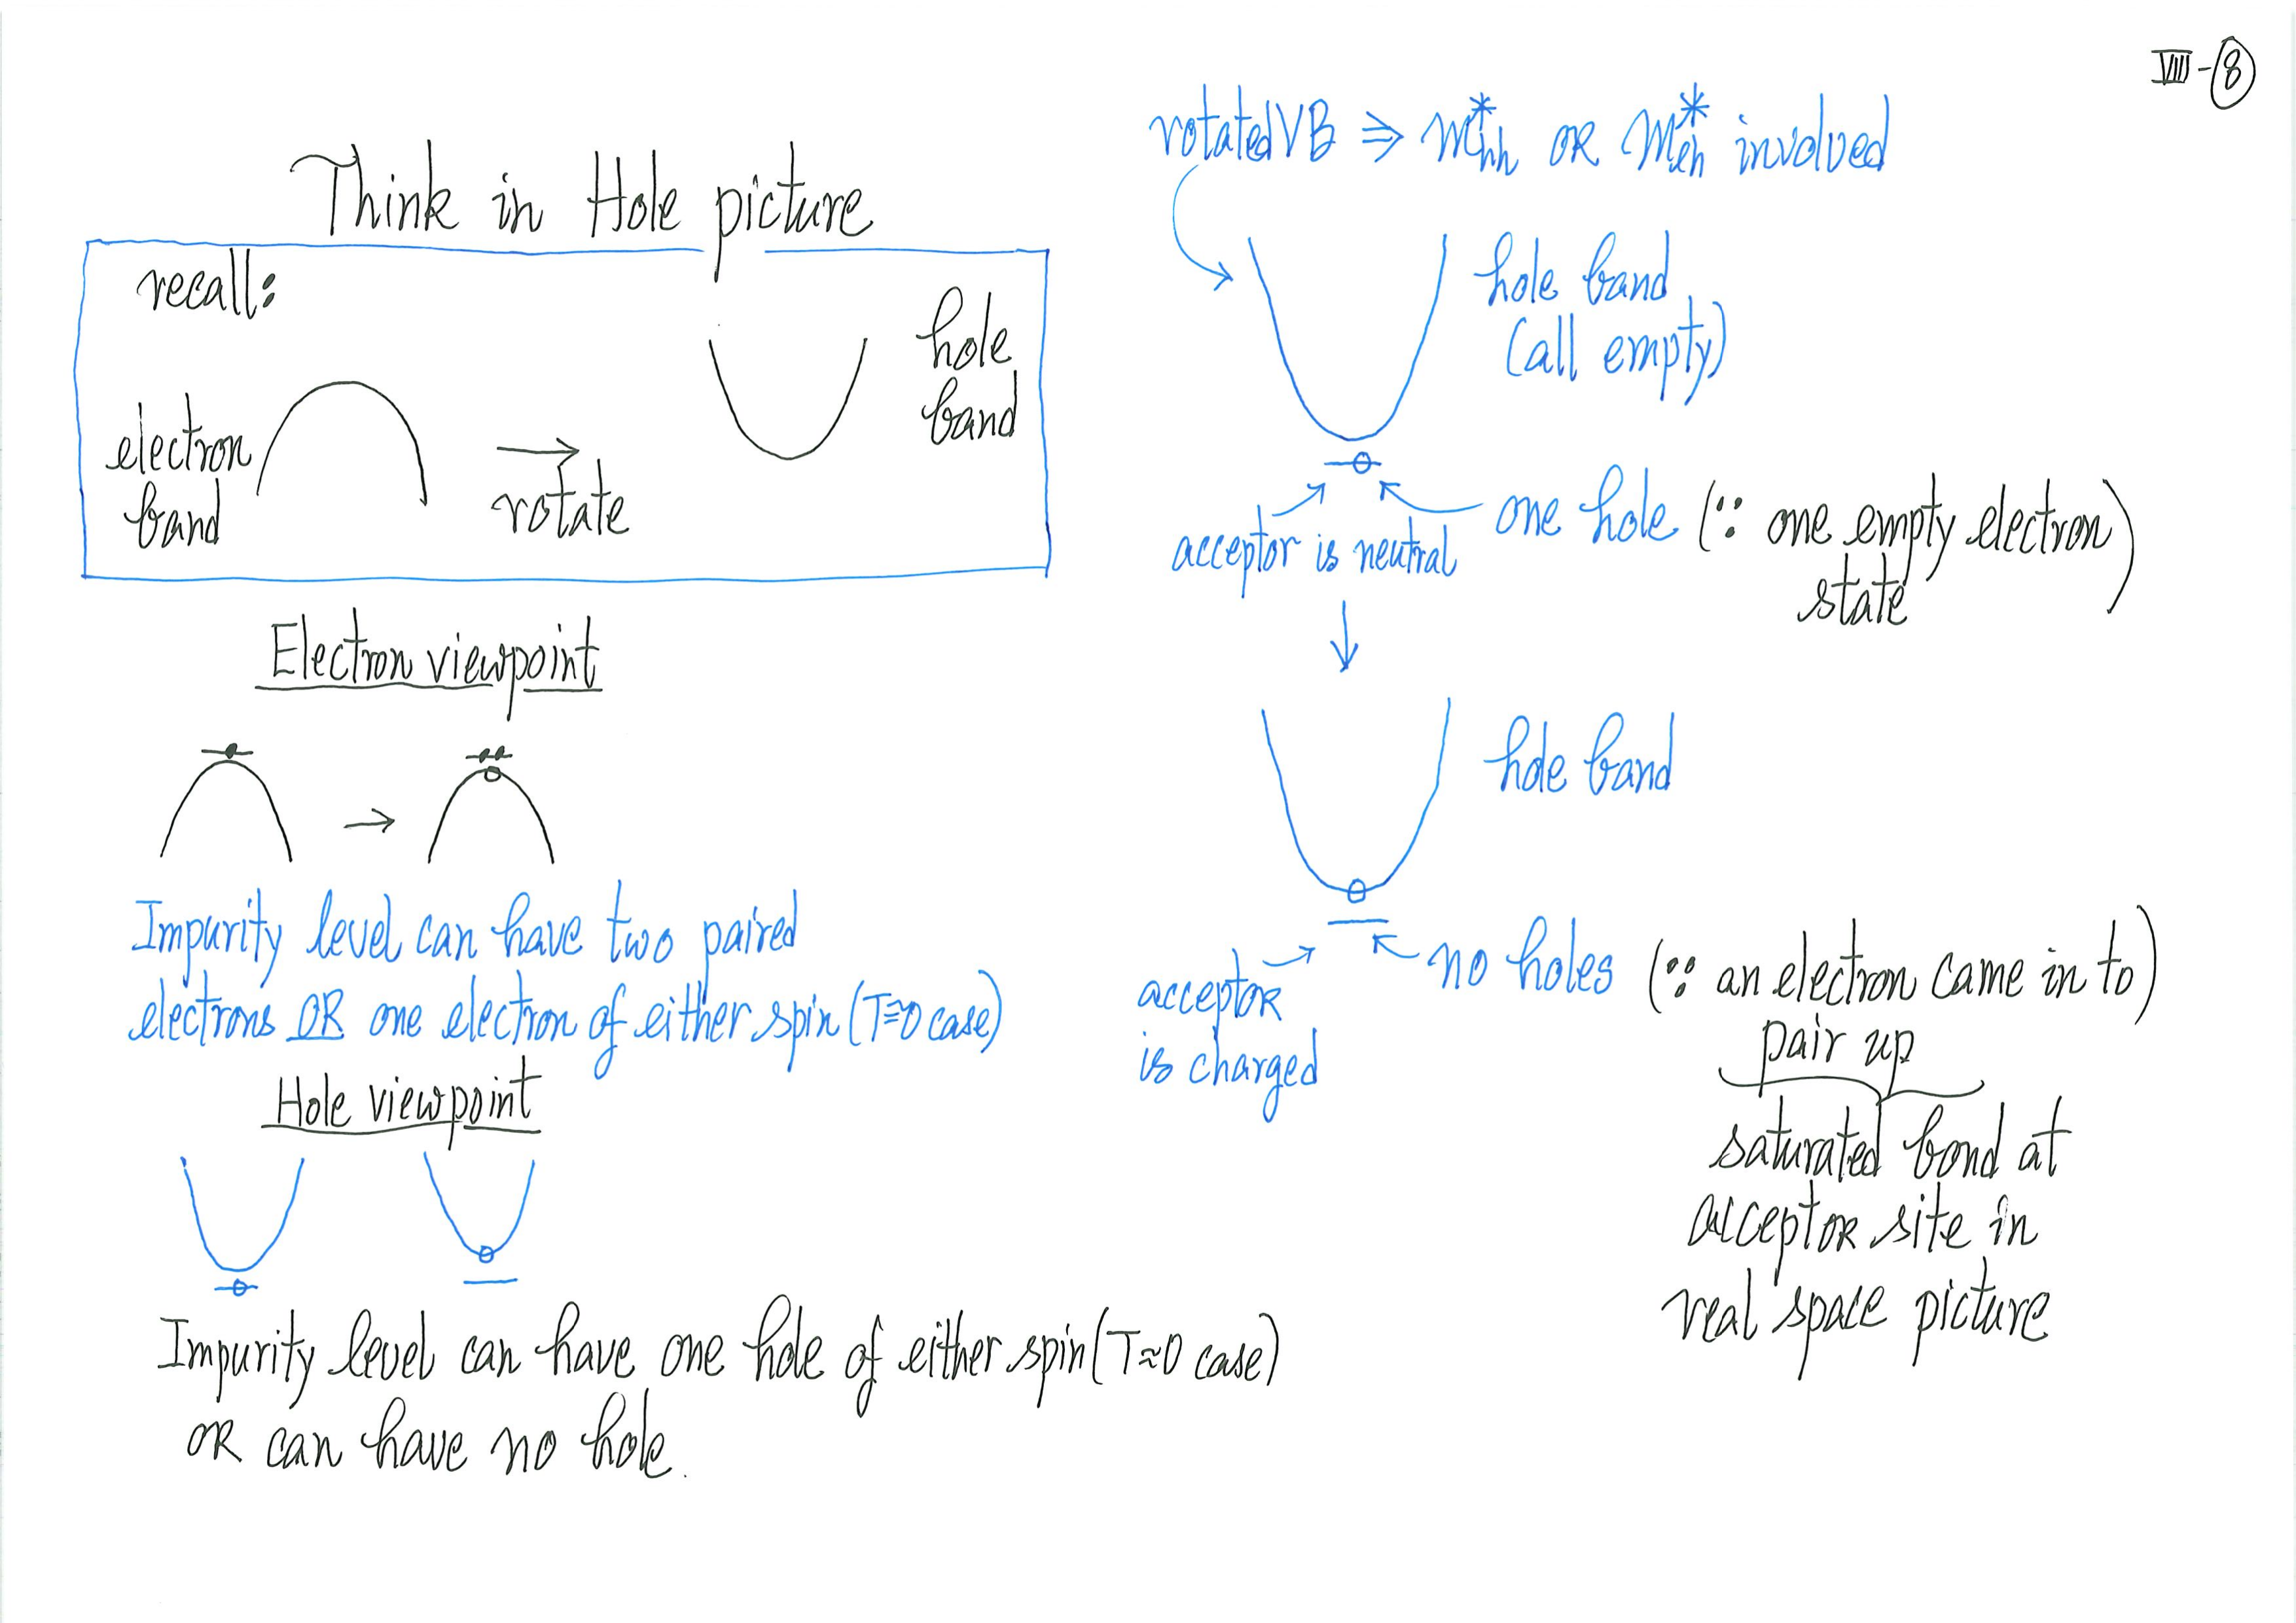 VIII-8
Think in Hole picture
recall:
electron
band
rotate
hole
band
Electron viewpoint
Impurity level can have two paired
electrons OR one electron of either spin (T≈0 case)
Hole viewpoint
Impurity level can have one hole of either spin (T≈0 case)
OR can have no hole.
rotated VB ⇒ m*hh OR m*lh involved
hole band
(all empty)
acceptor is neutral
one hole (∵ one empty electron
state)
hole band
acceptor
is charged
no holes (∵ an electron came in to)
pair up
saturated bond at
acceptor site in
real space picture